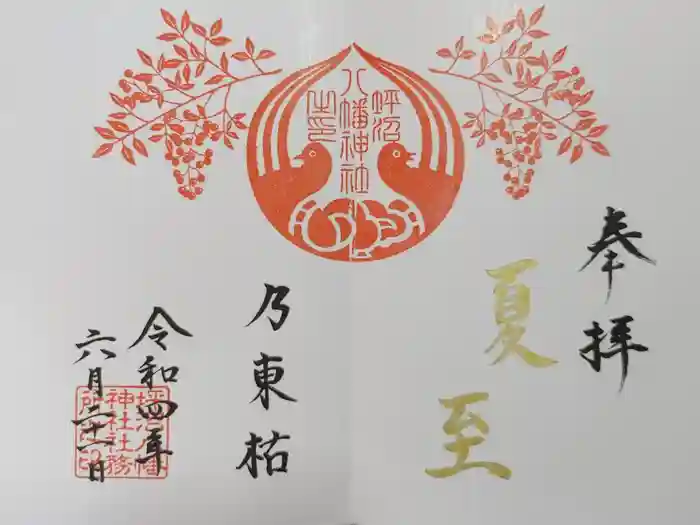 奉拝
夏至
坪沼
八幡神社
之印
乃東枯
令和四年
六月二十一日
坪沼八幡
神社社務
所之印